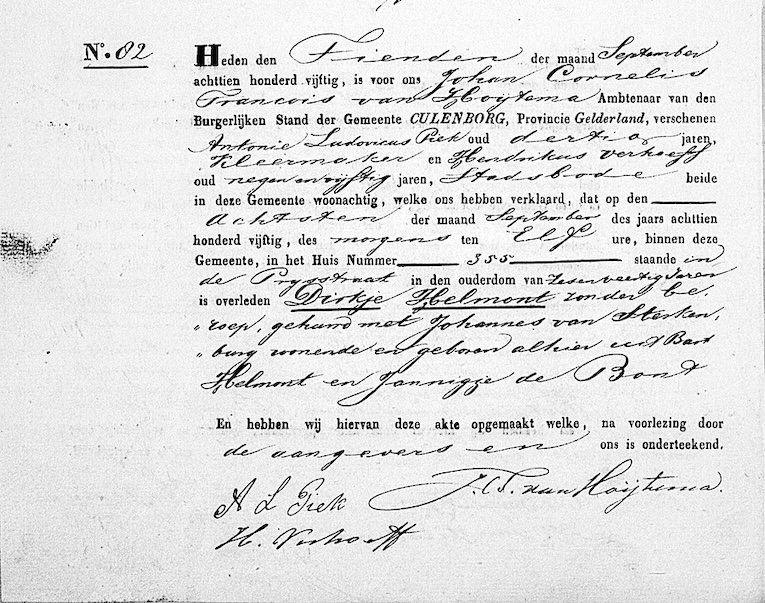 No. 82
Heden den Tienden der maand September
achttien honderd vijftig, is voor ons Johan Cornelis
Francois van Hoijtema Ambtenaar van den
Burgerlijken Stand der Gemeente CULENBORG, Provincie Gelderland, verschenen
Antonie Ludovicus Piek oud dertig jaren,
Kleermaker en Hendrikus verhoeff
oud negen en vijftig jaren, Stadsbode beide
in deze Gemeente woonachtig, welke ons hebben verklaard, dat op den
Achtsten der maand September des jaars achttien
honderd vijftig, des morgens ten Elf ure, binnen deze
Gemeente, in het Huis Nummer 355 staande in
de Prysstraat in den ouderdom van Zesenveertig Jaren
is overleden Dirkje Helmont zonder be„
„roep, gehuwd met Johannes van Sterken„
„burg wonende en geboren alhier uit Bart
Helmont en Jannigje de Bont
En hebben wij hiervan deze akte opgemaakt welke, na voorlezing door
de aangevers en ons is onderteekend.
A L Piek J. C. F. van Hoijtema.
H. Verhoeff